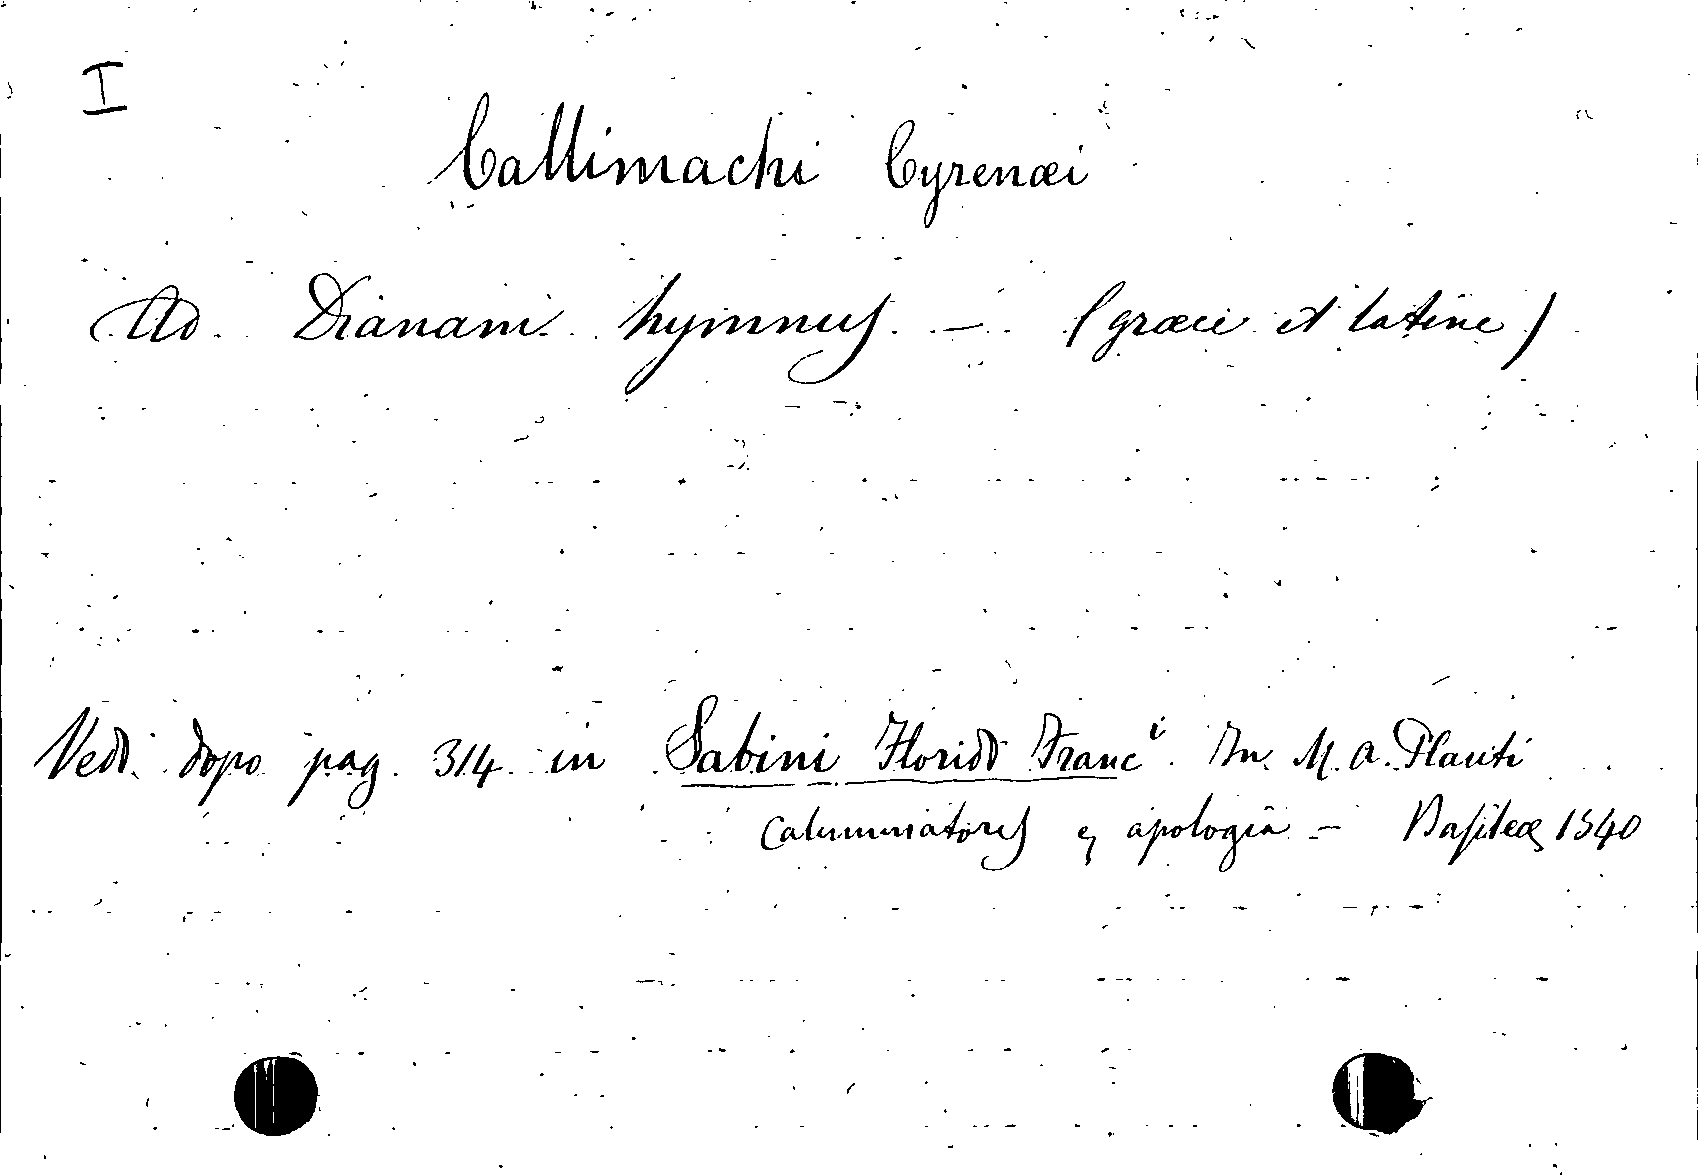 I
Callimachi Cyrenæi
Ad Dianam hymnus - (græce et latine)
Vedi dopo pag. 314 in Sabini Florido Franci In M. A. Plauti
calumniatores & apologia - Basileæ 1540